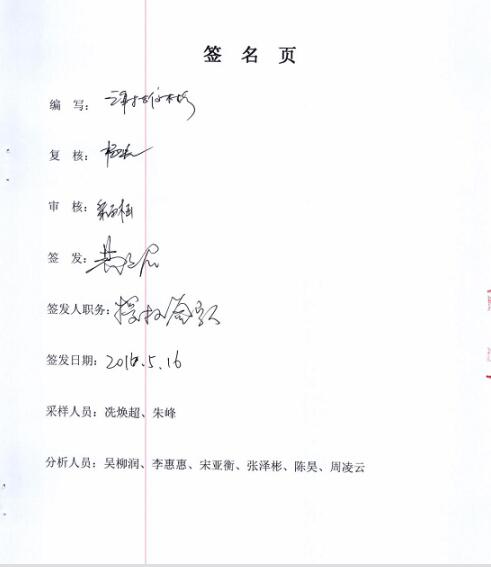 签 名 页
编 写：
复 核：
审 核：
签 发：
签发人职务：授权签字人
签发日期：2016.5.16
采样人员：冼焕超、朱峰
分析人员：吴柳润、李惠惠、宋亚衡、张泽彬、陈昊、周凌云